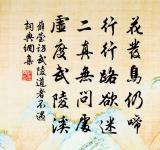 花發鳥仍啼
行行路欲迷
二真無問處
虛度武陵溪
薛瑩訪武陵道者不遇
詞典網集